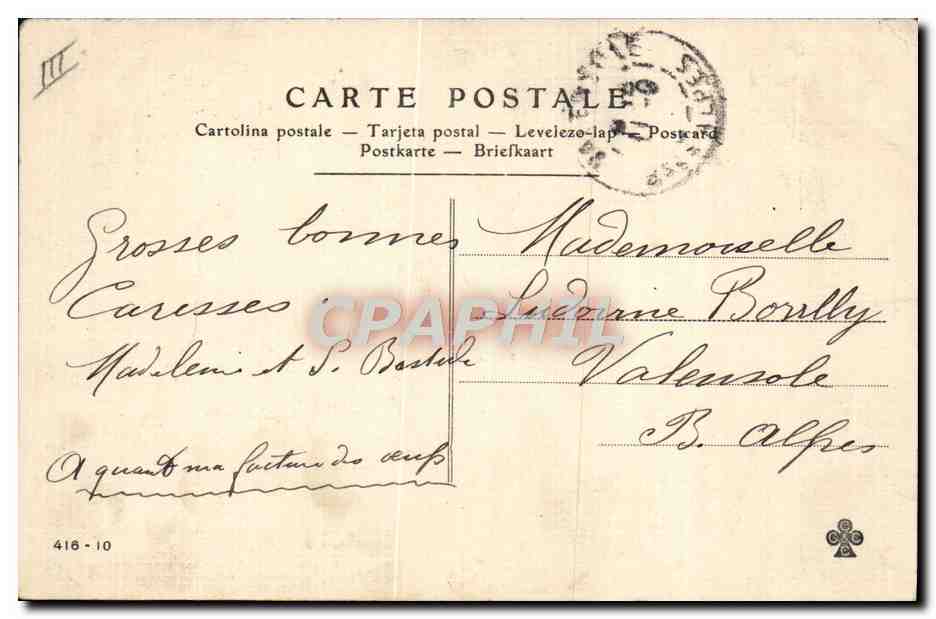 III
CARTE POSTALE
Cartolina postale — Tarjeta postal — Levelezo-lap — Postcard
Postkarte — Briefkaart
Grosses bonnes
Caresses
Madeleine et S. Bastide
A quand ma facture des œufs
Mademoiselle
Ludovine Borrilly
Valensole
B. Alpes
CPAPHIL
416 - 10
C C C C